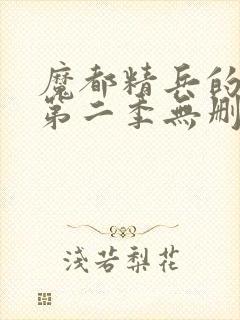 魔都精兵的
第二季無刪
浅若梨花